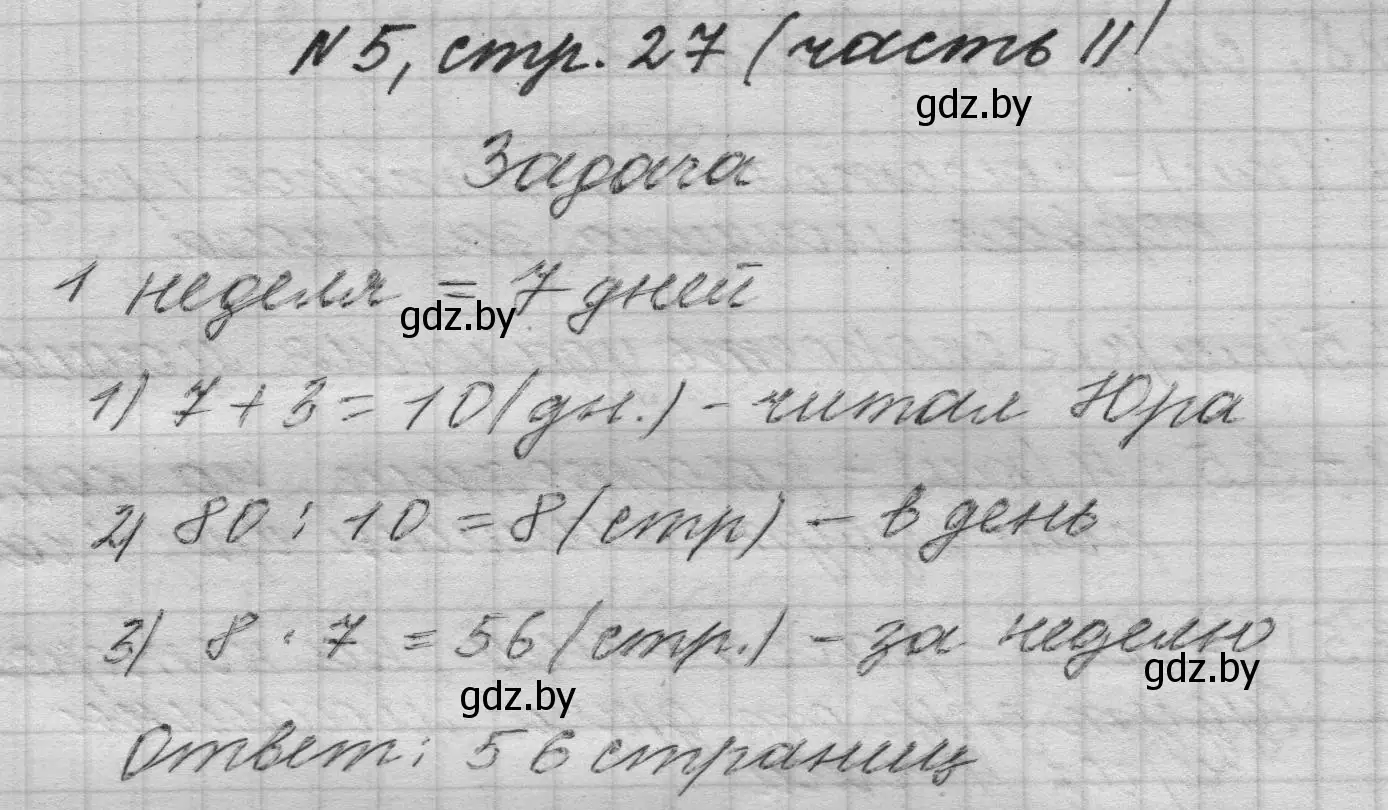 N 5, стр. 27 (часть II)
gdz.by
Задача
1 неделя = 7 дней
gdz.by
1) 7 + 3 = 10 (дн.) - читал Юра
2) 80 : 10 = 8 (стр) - в день
3) 8 · 7 = 56 (стр.) - за неделю
gdz.by
gdz.by
Ответ: 56 страниц